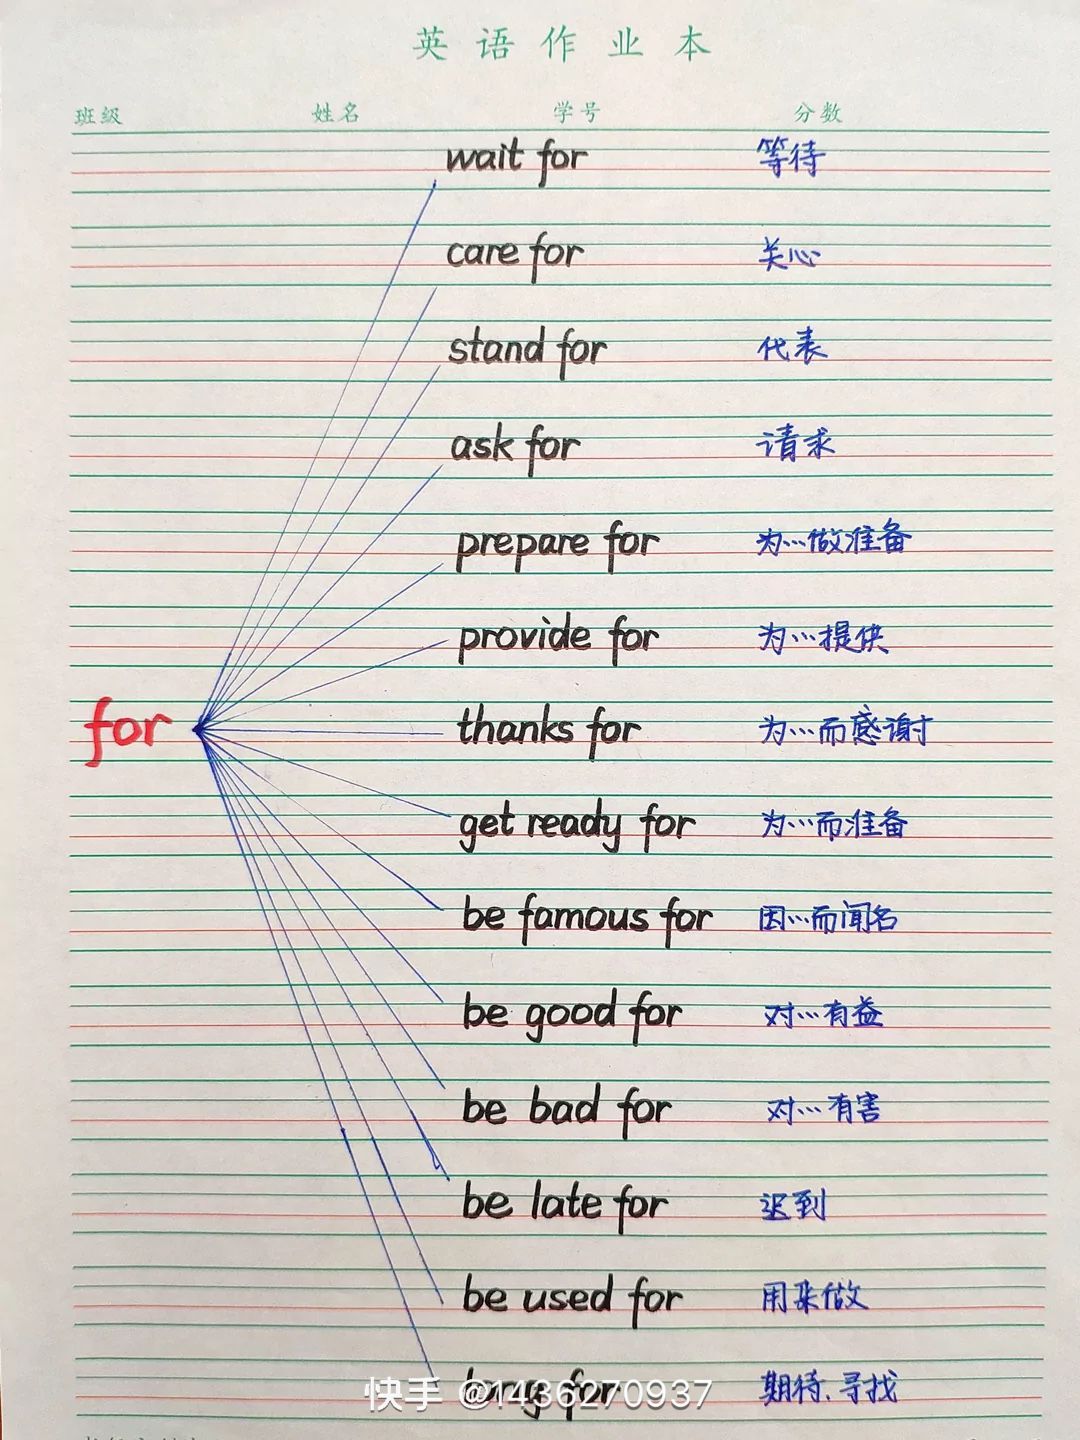 英语作业本
班级 姓名 学号 分数
wait for 等待
care for 关心
stand for 代表
ask for 请求
prepare for 为…做准备
provide for 为…提供
for thanks for 为…而感谢
get ready for 为…而准备
be famous for 因…而闻名
be good for 对…有益
be bad for 对…有害
be late for 迟到
be used for 用来做
for 期待、寻找
快手 @1436270937